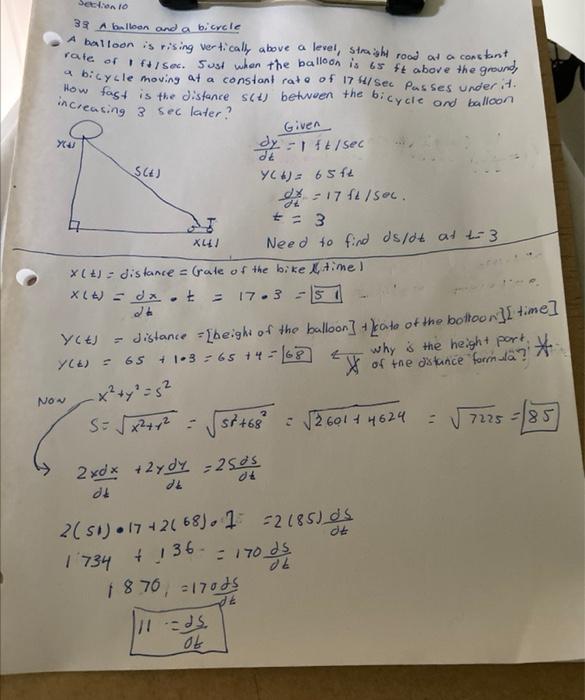 Section 10
33 A balloon and a bicycle
A balloon is rising vertically above a level, straight road at a constant
rate of 1 ft/sec. Just when the balloon is 65 ft above the ground,
a bicycle moving at a constant rate of 17 ft/sec passes under it.
How fast is the distance s(t) between the bicycle and balloon
increasing 3 sec later?
Given
dy/dt = 1 ft/sec
Y(t)
S(t)
y(t) = 65 ft
dx/dt = 17 ft/sec.
t = 3
X(t)
Need to find ds/dt at t=3
X(t) = distance = (rate of the bike)(time)
X(t) = dx/dt • t = 17•3 = 51
Y(t) = distance = [height of the balloon] + [rate of the balloon][time]
Y(t) = 65 + 1•3 = 65 + 4 = 68
why is the height part
of the distance formula?
Now x²+y²=s²
S = √x²+y² = √51²+68² = √2601+4624 = √7225 = 85
2xdx/dt + 2ydy/dt = 2Sds/dt
2(51)•17 + 2(68)•1 = 2(85) ds/dt
1734 + 136 = 170 ds/dt
1870 = 170 ds/dt
11 = ds/dt